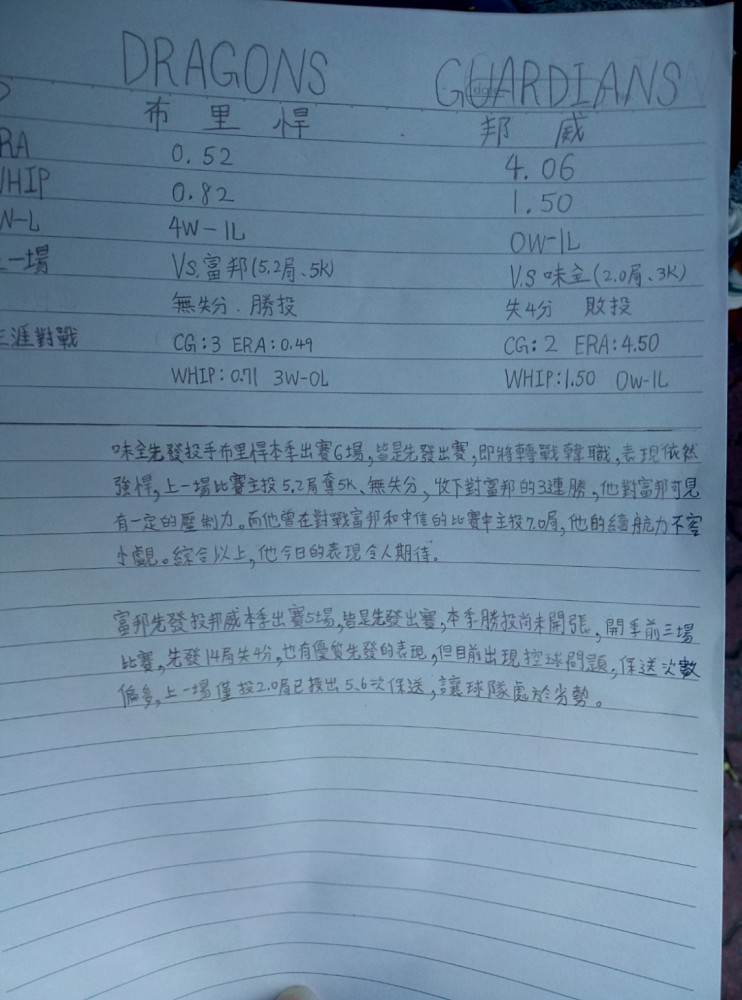 DRAGONS GUARDIANS
布里悍 邦威
RA 0.52 4.06
WHIP 0.82 1.50
W-L 4W-1L 0W-1L
上一場 VS.富邦(5.2局、5K) V.S味全(2.0局、3K)
無失分.勝投 失4分 敗投
生涯對戰 CG:3 ERA:0.49 CG:2 ERA:4.50
WHIP:0.71 3W-0L WHIP:1.50 0W-1L
味全先發投手布里悍本季出賽6場,皆是先發出賽,即將轉戰韓職,表現依然
強悍,上一場比賽主投5.2局奪5K、無失分,收下對富邦的3連勝,他對富邦可見
有一定的壓制力。而他曾在對戰富邦和中信的比賽中主投7.0局,他的續航力不容
小覷。綜合以上,他今日的表現令人期待。
富邦先發投邦威本季出賽5場,皆是先發出賽,本季勝投尚未開張,開季前三場
比賽,先發14局失4分,也有優質先發的表現,但目前出現控球問題,保送次數
偏多,上一場僅投2.0局已投出5.6次保送,讓球隊處於劣勢。